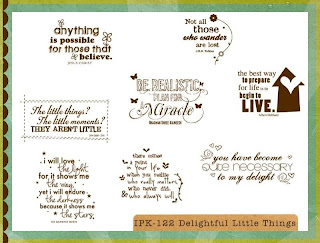 anything
is possible
for those that
believe.
Not all
those
who wander
are lost
J.R.R. Tolkien
BE REALISTIC
PLAN FOR A
Miracle
BHAGWAN SHREE RAJNEESH
the best way
to prepare
for life is to
begin to
LIVE.
The little things?
The little moments?
THEY AREN'T LITTLE
i will love
the light
for it shows me
the way,
yet i will endure
the darkness
because it shows me
the stars
there comes
a point in
your life
when you realize
who really matters,
who never did,
& who always will
you have become
QUITE NECESSARY
to my delight
IPK-122 Delightful Little Things